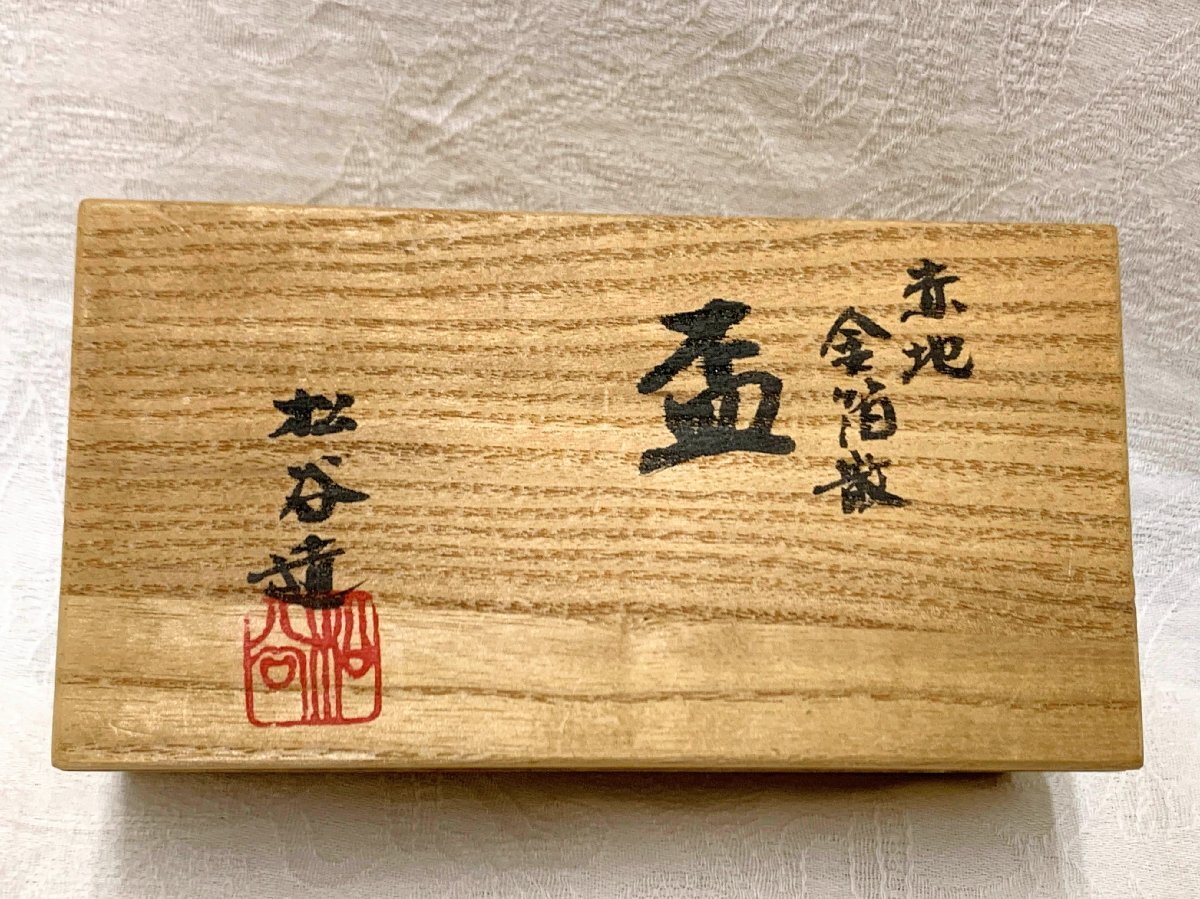 赤地
金箔散
盃
松谷造
松谷